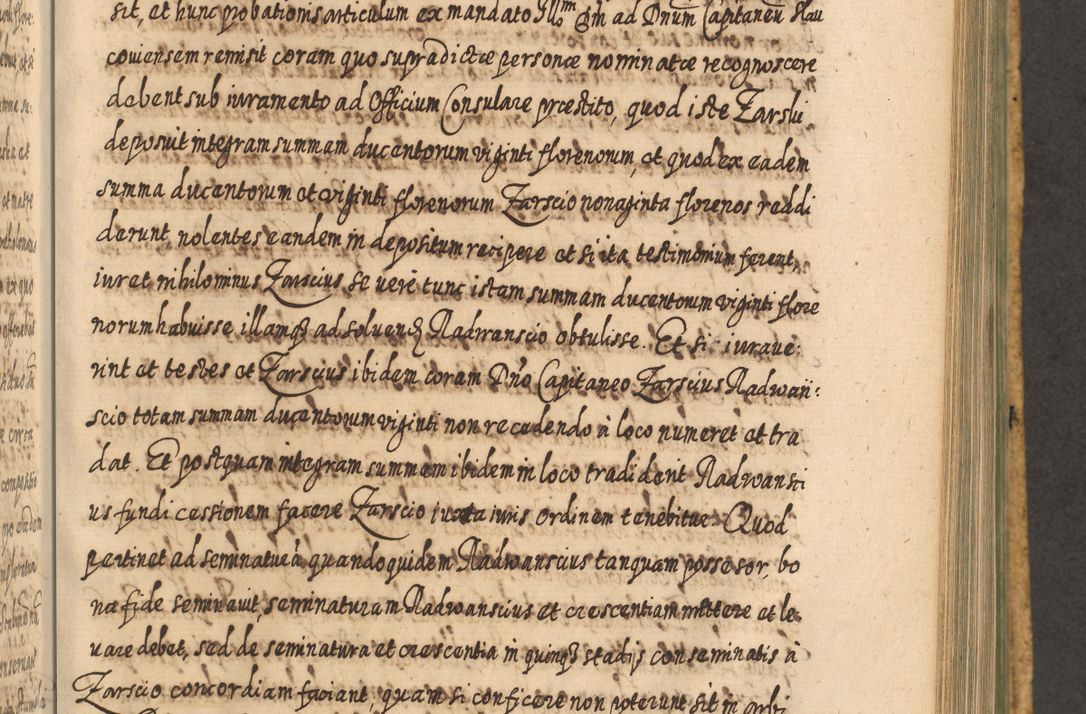 sit, et hunc probationis articulum ex mandato Illmi gm ad Dnum Capitaneu Slau
couiensem remisit coram quo supradictæ personæ nominatæ recognoscere
debent sub iuramento ad Officium Consulare præstito, quod iste Zarski
deposuit integram summam ducentorum viginti florenorum, et quod ex eadem
summa ducentorum et viginti florenorum Zarscio nonaginta florenos reddi
derunt nolentes eandem in depositum recipere et si ita testimonium ferent,
iuret nihilominus Zarscius se vere tunc istam summam ducentorum viginti flore
norum habuisse illamq ad soluend Radwanscio obtulisse. Et si iuraue:
rint et testes et Zarscius ibidem coram Dno Capitaneo Zarscius Radwan:
scio totam summam ducentorum viginti non recedendo à loco numeret et tra
dat. Et postquam integram summam ibidem in loco tradiderit Radwansci
us fundi cessionem facere Zarscio iuxta iuris ordinem tenebitur. Quod
pertinet ad seminatura quandoquidem Radwanscius tanquam possesor, bo
na fide seminauit, seminaturam Radwanscius et crescentiam mettere et le
uare debet, sed de seminatura et crescentia in quinq stadijs conseminatis à
Zarscio concordiam faciant, quam si conficere non poterunt sit in arbi